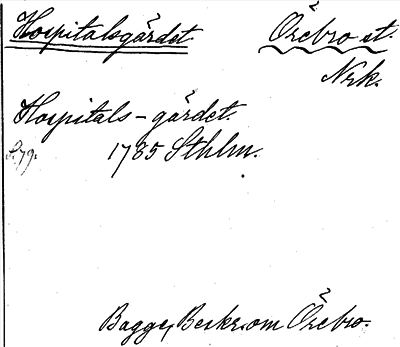 Hospitalsgärdet. Örebro st.
Nrk.
Hospitals-gärdet.
S. 79. 1785 Sthlm.
Bagge, Beskr. om Örebro.